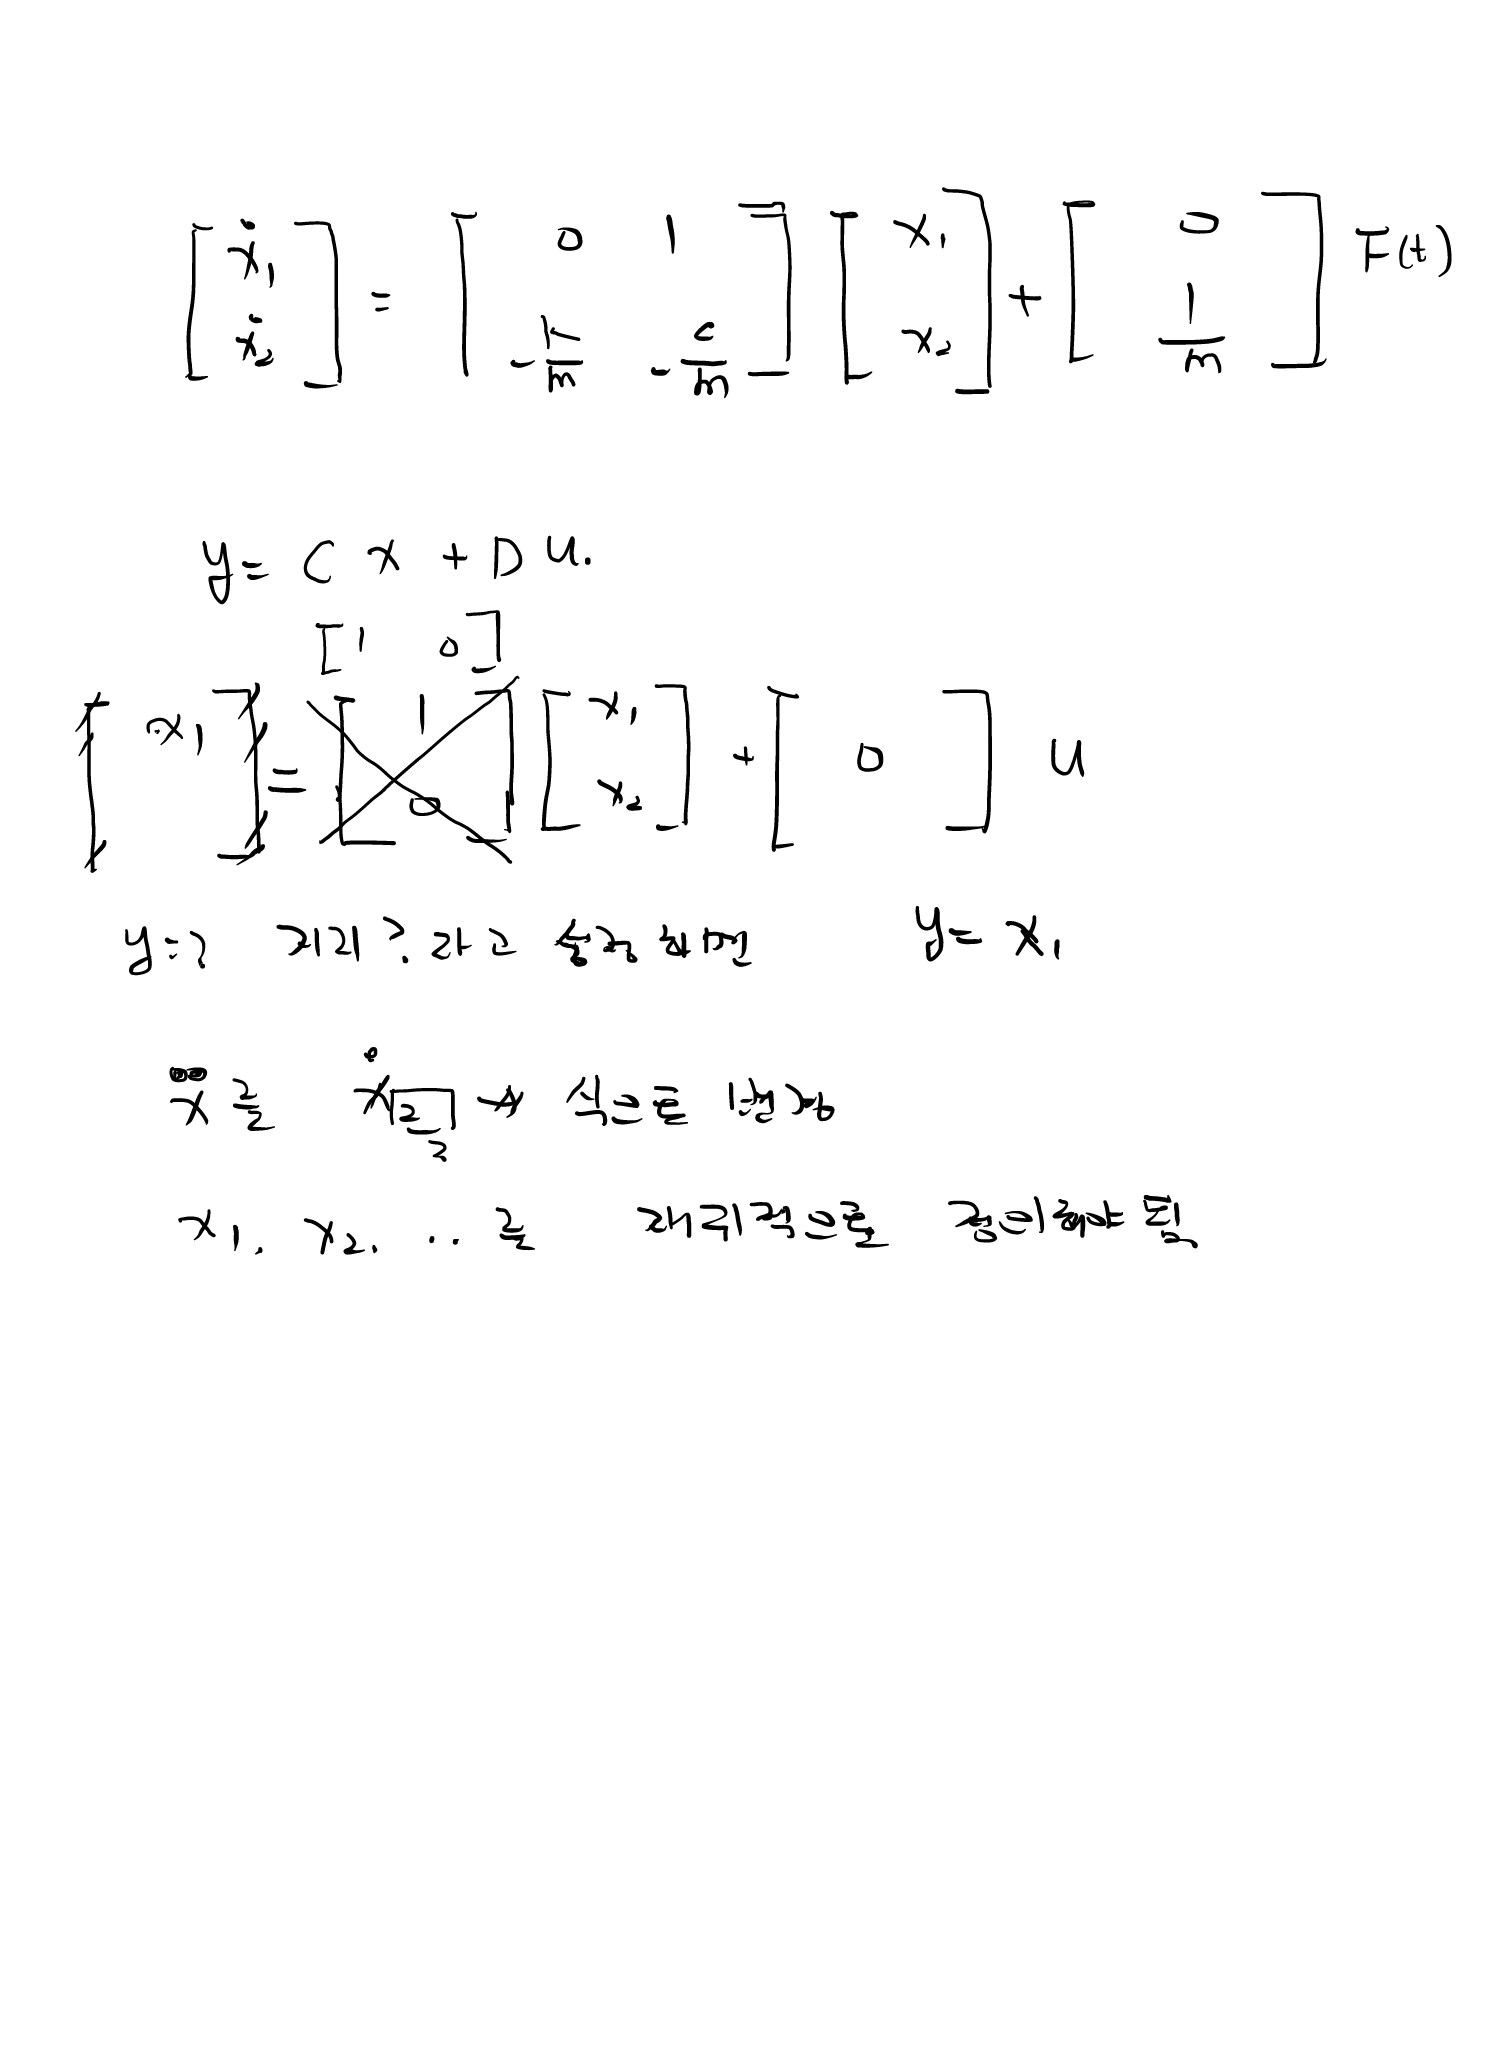 [ẋ₁ ẋ₂] = [0 1 -k/m -c/m] [x₁ x₂] + [0 1/m] F(t)
y = C x + D u.
[1 0]
[x₁] = [1 0] [x₁ x₂] + [0] u
y=? 거리? 라고 설정하면 y = x₁
ẍ 를 ẋ₂ → 식으로 변경
2
x₁, x₂, .. 를 재귀적으로 정의해야 됨